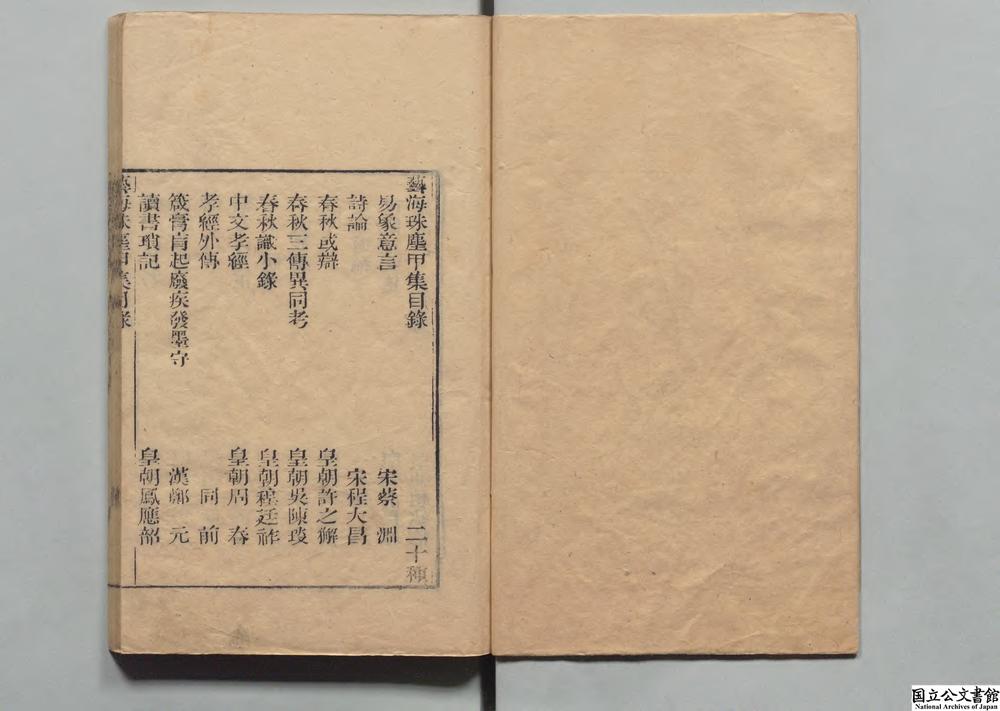 藝海珠塵甲集目錄 二十種
易象意言 宋蔡 淵
詩論 宋程大昌
春秋或辯 皇朝許之獬
春秋三傳異同考 皇朝吳陳琰
春秋識小錄 皇朝程廷祚
中文孝經 皇朝周 春
孝經外傳 同 前
箴膏肓起廢疾發墨守 漢鄭 元
讀書瑣記 皇朝鳳應韶
藝海珠塵甲集目錄
国立公文書館
National Archives of Japan